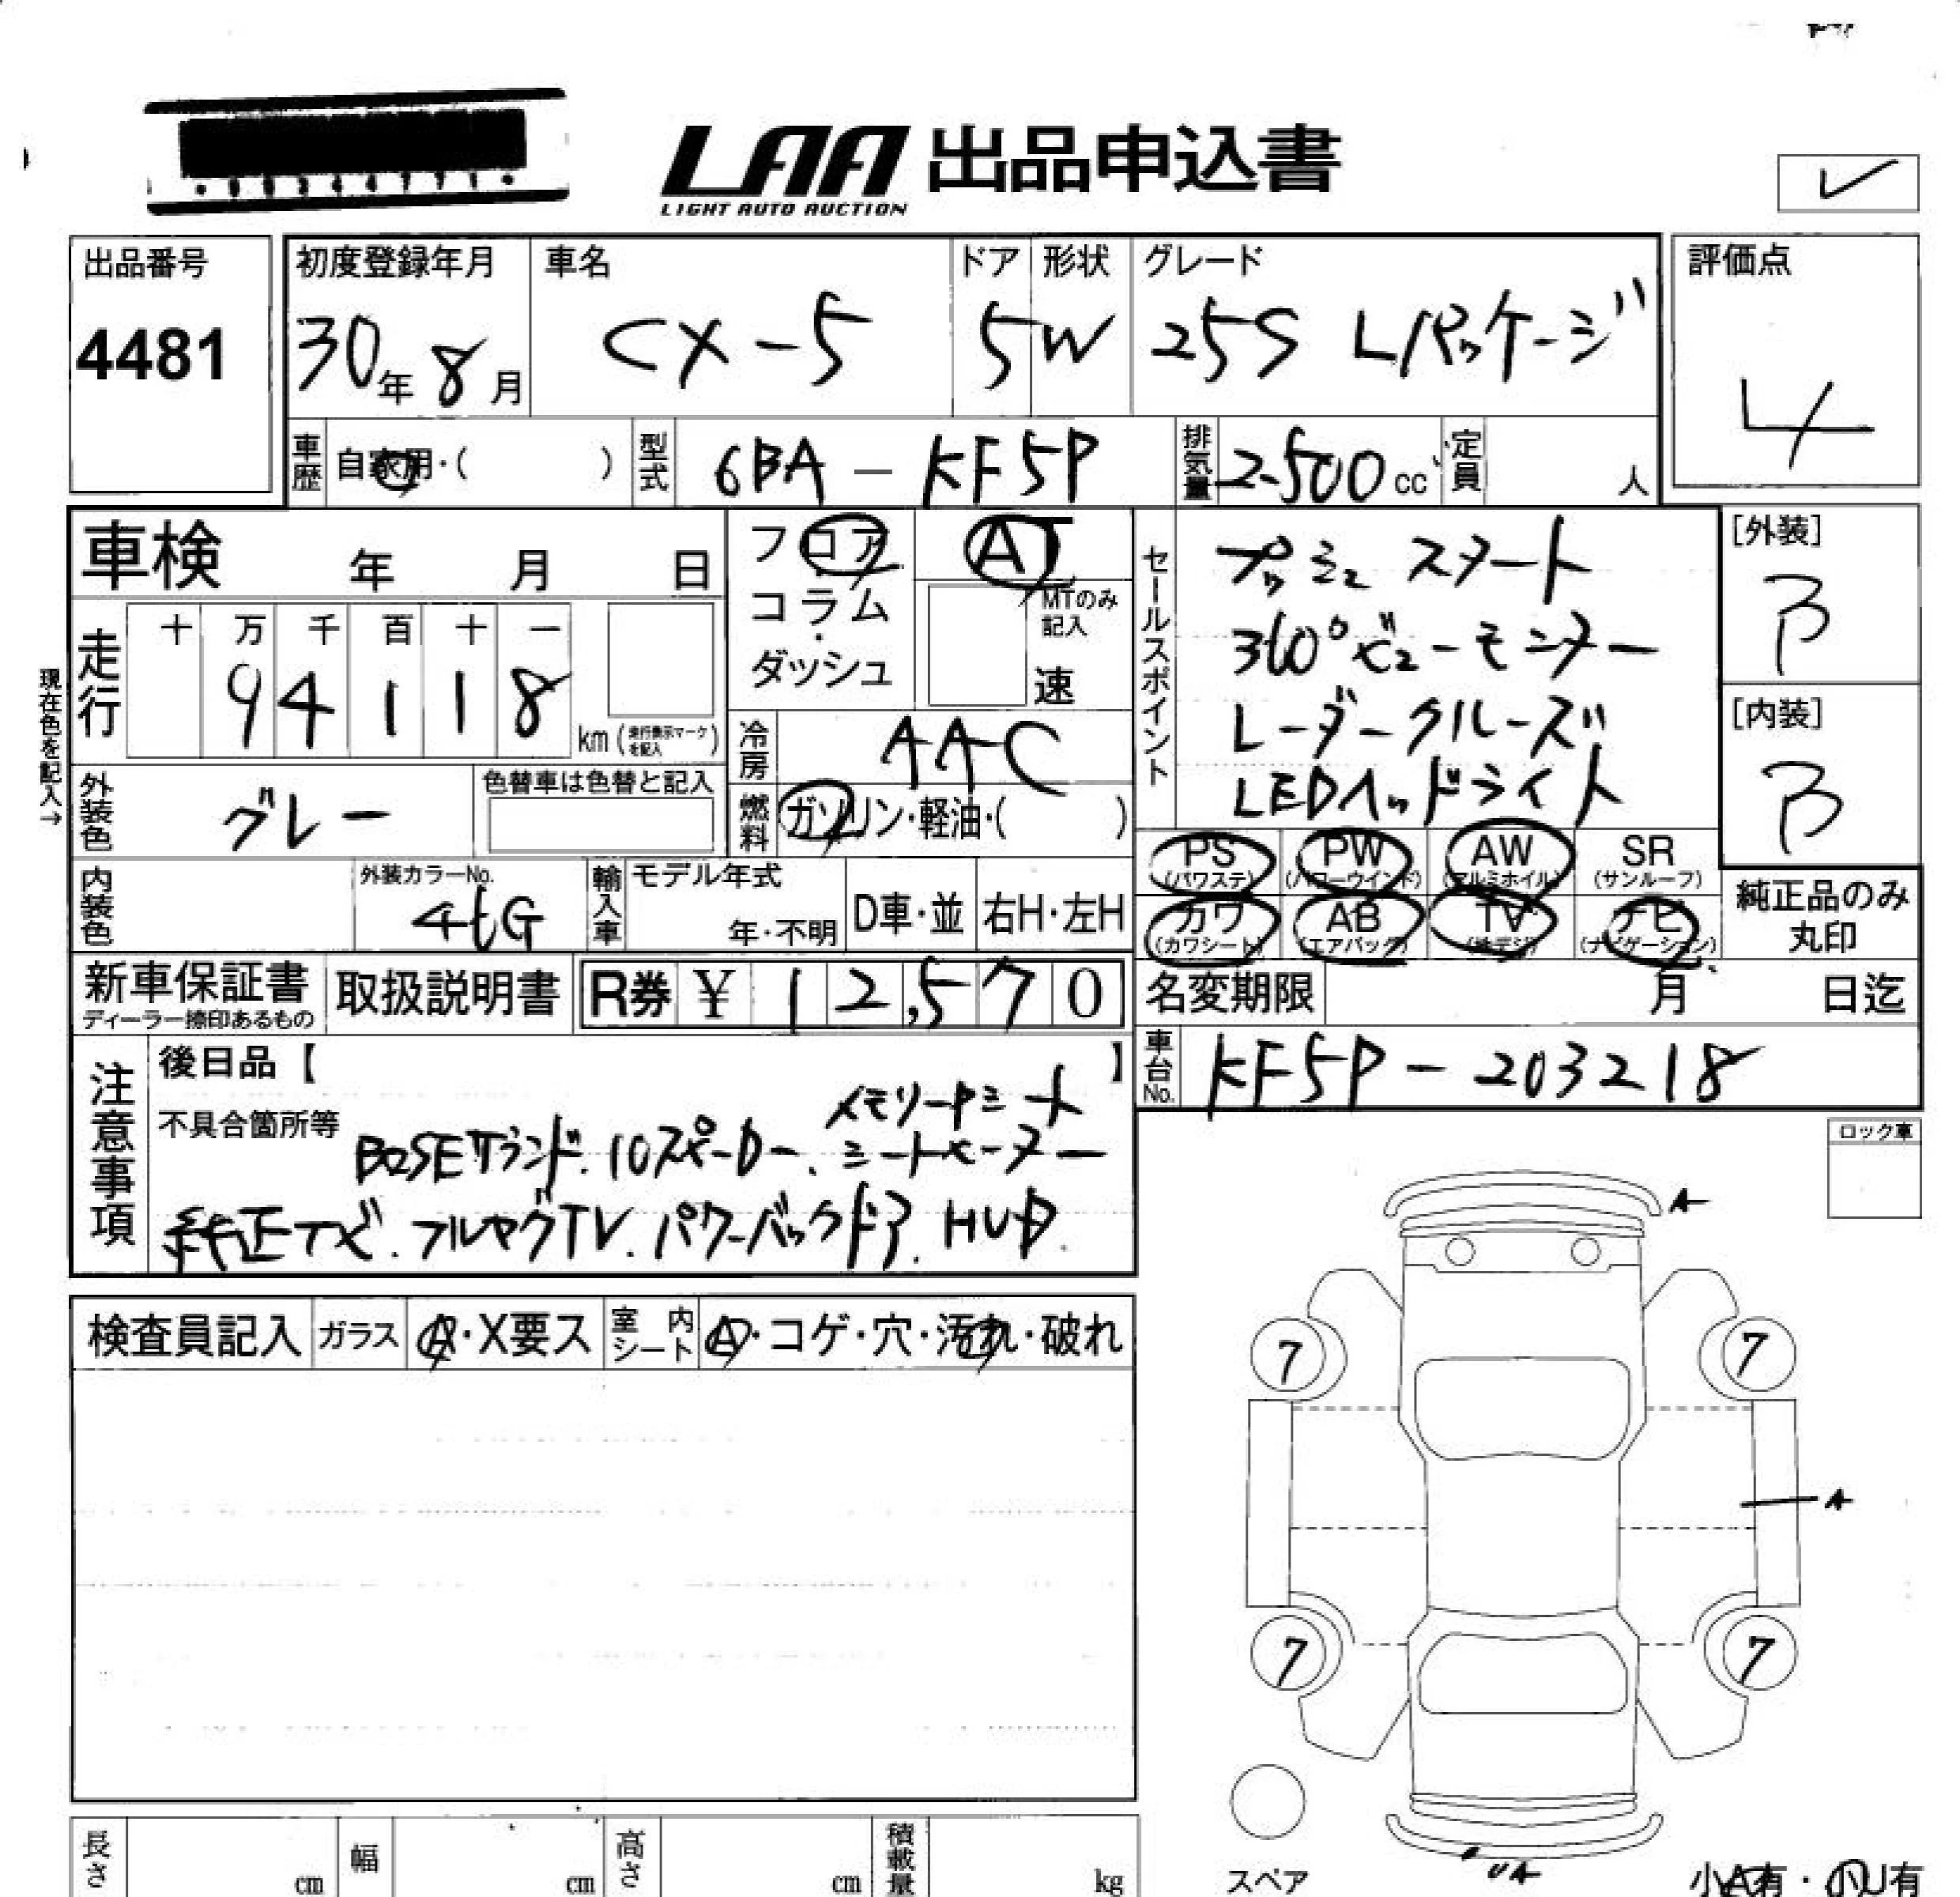 LAA 出品申込書
LIGHT AUTO AUCTION
出品番号
4481
初度登録年月
30年 8月
車名
CX-5
ドア
5
形状
W
グレード
25S Lパッケージ
評価点
4
車歴
自家用・( )
型式
6BA - KF5P
排気量
2500 cc
定員
人
車検 年 月 日
フロア
コラム
ダッシュ
AT
MTのみ記入
速
セールスポイント
プッシュスタート
360°ビューモニター
レーダークルーズ
LEDヘッドライト
[外装]
B
[内装]
B
現在色を記入→
走行
十 万 千 百 十 一
9 4 1 1 8
km (走行表示マークを記入)
冷房
AAC
外装色
グレー
色替車は色替と記入
燃料
ガソリン・軽油・( )
PS (パワステ)
PW (パワーウインド)
AW (アルミホイル)
SR (サンルーフ)
カワ (カワシート)
AB (エアバッグ)
TV (地デジ)
ナビ (ナビゲーション)
純正品のみ丸印
内装色
外装カラーNo.
46G
輸入車
モデル年式
年・不明
D車・並
右H・左H
新車保証書
ディーラー捺印あるもの
取扱説明書
R券 ¥ 12,570
名変期限 月 日迄
車台No.
KF5P - 203218
注意事項
後日品【 】
不具合箇所等
メモリーPシート
BOSEサウンド. 10スピーカー. シートヒーター
純正ナビ. フルセグTV. パワーバックドア. HUD.
ロック車
検査員記入
ガラス
A・X要ス
室内シート
A・コゲ・穴・汚れ・破れ
A
7
7
A
7
7
スペア
長さ cm
幅 cm
高さ cm
積載量 kg
小A有・小U有